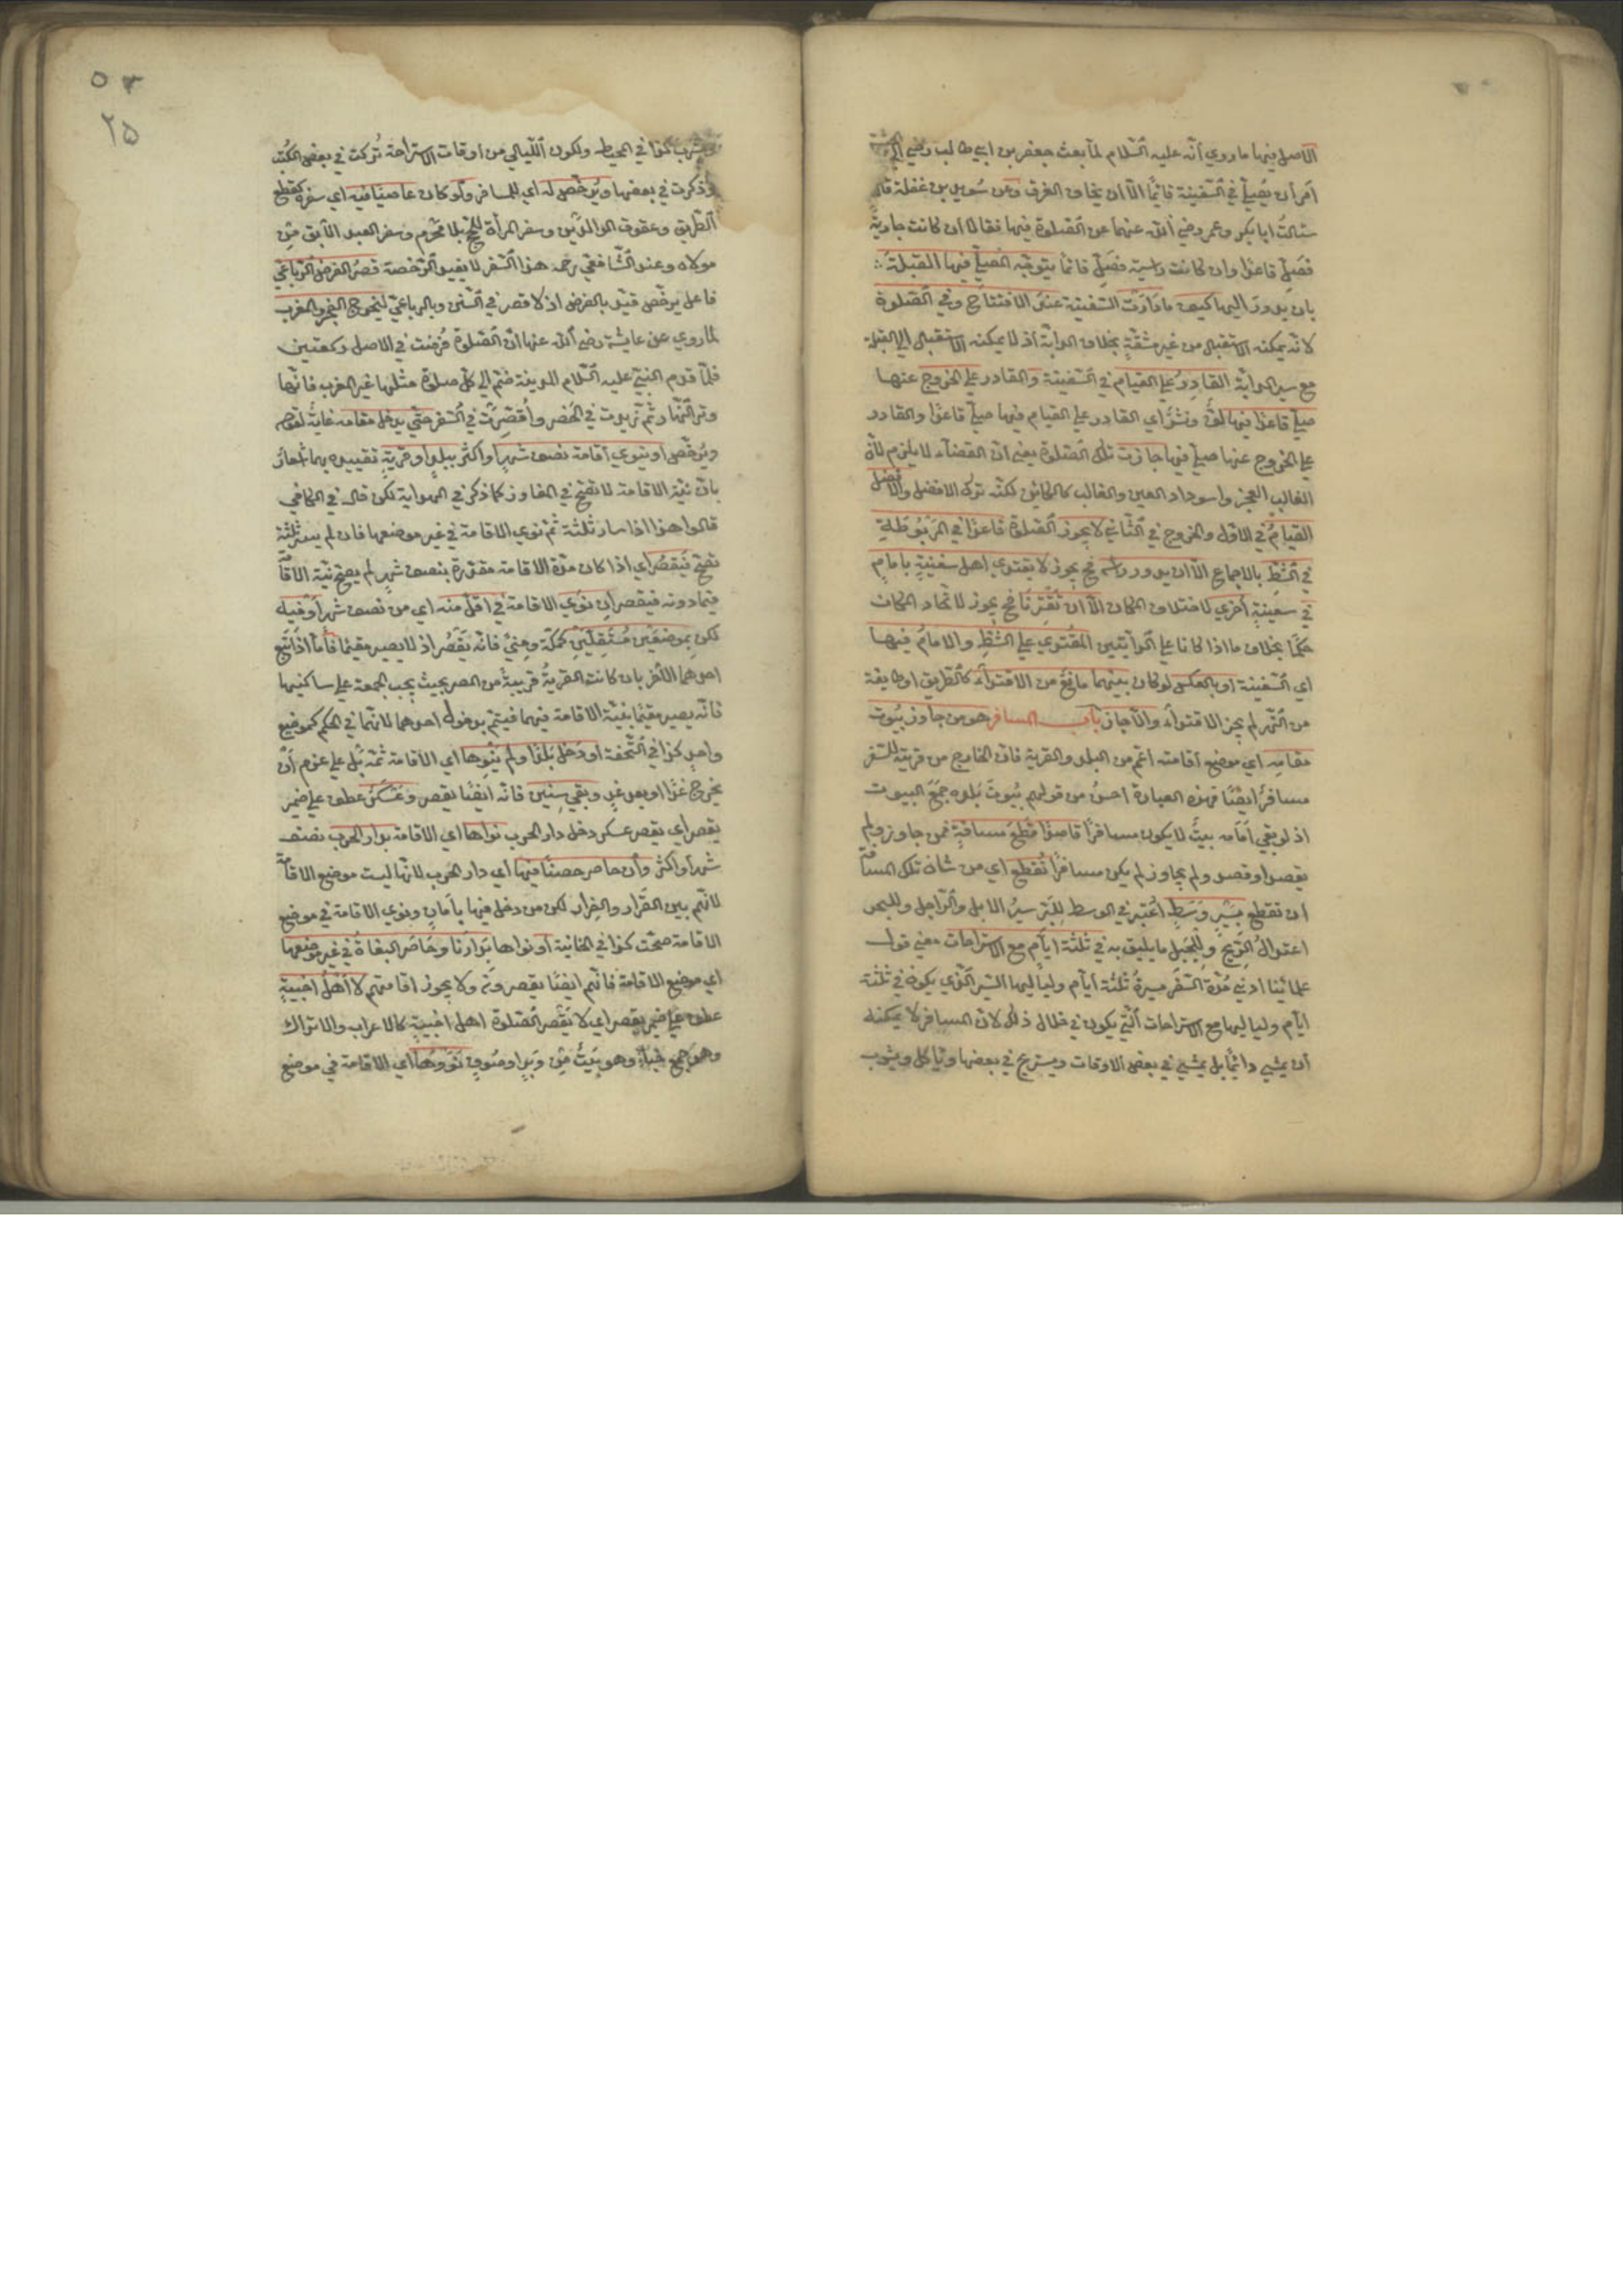 الاصل فيها ما روي أنه عليه السلام لما بعث جعفر بن ابي طالب رضي الى الحبشة
أمر أن يصلي في السفينة قائما الا أن يخاف الغرق وعن سويد بن غفلة قال
سئالت ابا بكر وعمر رضي الله عنهما عن الصلوة فيها فقالا ان كانت جارية
فصل قاعدا وان كانت راسية فصل قائما يتوجه المصلي فيها القبلة
بان يدور اليها كيف ما دارت السفينة عند الافتتاح وفي الصلوة
لانه يمكنه الاستقبال من غير مشقة بخلاف الدابة اذ لا يمكنه الاستقبال الى القبلة
مع سير الدابة القادر على القيام في السفينة والقادر على الخروج عنها
صلى قاعدا فيها لف ونشر اي القادر على القيام فيها صلى قاعدا والقادر
على الخروج عنها صلى فيها جازت تلك الصلوة يعني ان القضاء لا يلزم لان
الغالب العجز واسوداد العين والغالب كالكائن لكنه ترك الافضل والافضل
القيام في الاول والخروج في الثاني لا يجوز الصلوة قاعدا في المربوطة
في الشط بالاجماع الا ان يدور راسه فح يجوز لا يقتدي اهل سفينة بامام
في سفينة أخرى لاختلاف المكان الا ان تقترنا فح يجوز لاتحاد المكان
حكما بخلاف ما اذا كانا على الدابتين المقتدي على الشط والامام فيها
اي السفينة او بالعكس لو كان بينهما مانع من الاقتداء كالطريق او طايفة
من النهر لم يجز الاقتداء والا جاز باب المسافر هو من جاوز بيوت
مقامه اي موضع اقامته اعم من البلد والقرية فان الخارج من قريته للسفر
مسافر ايضا فهذه العبارة احسن من قولهم بيوت بلده جمع البيوت
اذ لو بقي أمامه بيت لا يكون مسافرا قاصدا قطع مسافة فمن جاوز ولم
يقصد او قصد ولم يجاوز لم يكن مسافرا تقطع اي من شان تلك المسافة
ان تقطع بسير وسط اعتبر في الوسط للبر سير الابل والراجل وللبحر
اعتدال الريح وللجبل ما يليق به في ثلثة ايام مع الاستراحات معنى قول
علمائنا ادنى مدة السفر مسيرة ثلثة ايام ولياليها السير الذي يكون في ثلثة
ايام ولياليها مع الاستراحات التي يكون في خلال ذلك لان المسافر لا يمكنه
ان يمشي دائما بل يمشي في بعض الاوقات ويستريح في بعضها وياكل ويشرب
٥٣
٢٥
ويشرب كذا في المحيط ولكون الليالي من اوقات الاستراحة تركت في بعض الكتب
وذكرت في بعضها ويرخص له اي للمسافر ولو كان عاصيا فيه اي سفره كقطع
الطريق وعقوق الوالدين وسفر المرأة للحج بلا محرم وسفر العبد الآبق من
مولاه وعند الشافعي رحمه هذا السفر لا يفيد الرخصة قصر الفرض الرباعي
فاعل يرخص قيد بالفرض اذ لا قصر في السنن وبالرباعي ليخرج الفجر والمغرب
لما روي عن عايشة رضي الله عنها ان الصلوة فرضت في الاصل ركعتين
فلما قدم النبي عليه السلام المدينة ضم الى كل صلوة مثلها غير المغرب فانها
وتر النهار ثم زيدت في الحضر وأقصرت في السفر حتى يدخل مقامه غاية لقوله
ويرخص او ينوي اقامة نصف شهر او اكثر ببلد او قرية تقييده بهما اشعار
بان نية الاقامة لا تصح في المفاوز كما ذكر في الهداية لكن قال في الكافي
قالوا هذا اذا سار ثلثة ثم نوى الاقامة في غير موضعها فان لم يسر ثلثة
تصح فيقصر اي اذا كان مدة الاقامة مقدرة بنصف شهر لم يصح نية الاقامة
فيما دونه فيقصر ان نوى الاقامة في اقل منه اي من نصف شهر او فيه
لكن بموضعين مستقلين كمكة ومنى فانه يقصر اذ لا يصير مقيما فأما اذا تبع
احدهما الآخر بان كانت القرية قريبة من المصر بحيث يجب الجمعة على ساكنيها
فانه يصير مقيما بنية الاقامة فيهما فيتم بدخول احدهما لانهما في الحكم كموضع
واحد كذا في التحفة او دخل بلدا ولم ينوها اي الاقامة ثمة بل على عزم أن
يخرج غدا او بعد غد وبقي سنين فانه ايضا يقصر وعسكر عطف على ضمير
يقصر اي يقصر عسكر دخل دار الحرب نواها اي الاقامة بدار الحرب نصف
شهر او اكثر وان حاصر حصنا فيها اي دار الحرب لانها ليست موضع الاقامة
لانهم بين القرار والفرار لكن من دخل فيها بأمان ونوى الاقامة في موضع
الاقامة صحت كذا في الخانية او نواها بدارنا وحاصر البغاة في غير موضعها
اي موضع الاقامة فانهم ايضا يقصرون ولا يجوز اقامتهم لا أهل اخبية
عطف على ضمير يقصر اي لا يقصر الصلوة اهل اخبية كالاعراب والاتراك
وهو جمع خباء وهو بيت من وبر او صوف نووها اي الاقامة في موضع